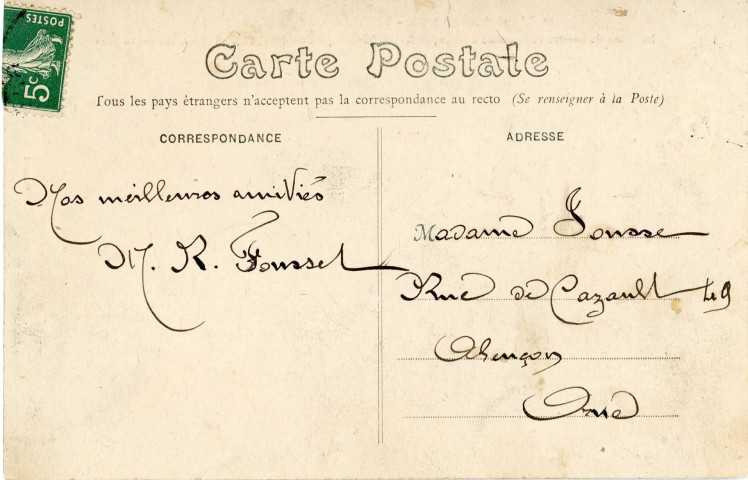 POSTES
5c
Carte Postale
Tous les pays étrangers n'acceptent pas la correspondance au recto (Se renseigner à la Poste)
CORRESPONDANCE
Nos meilleures amitiés
M. R. Fousset
ADRESSE
Madame Fousse
Rue de Cazault 49
Alençon
Orne